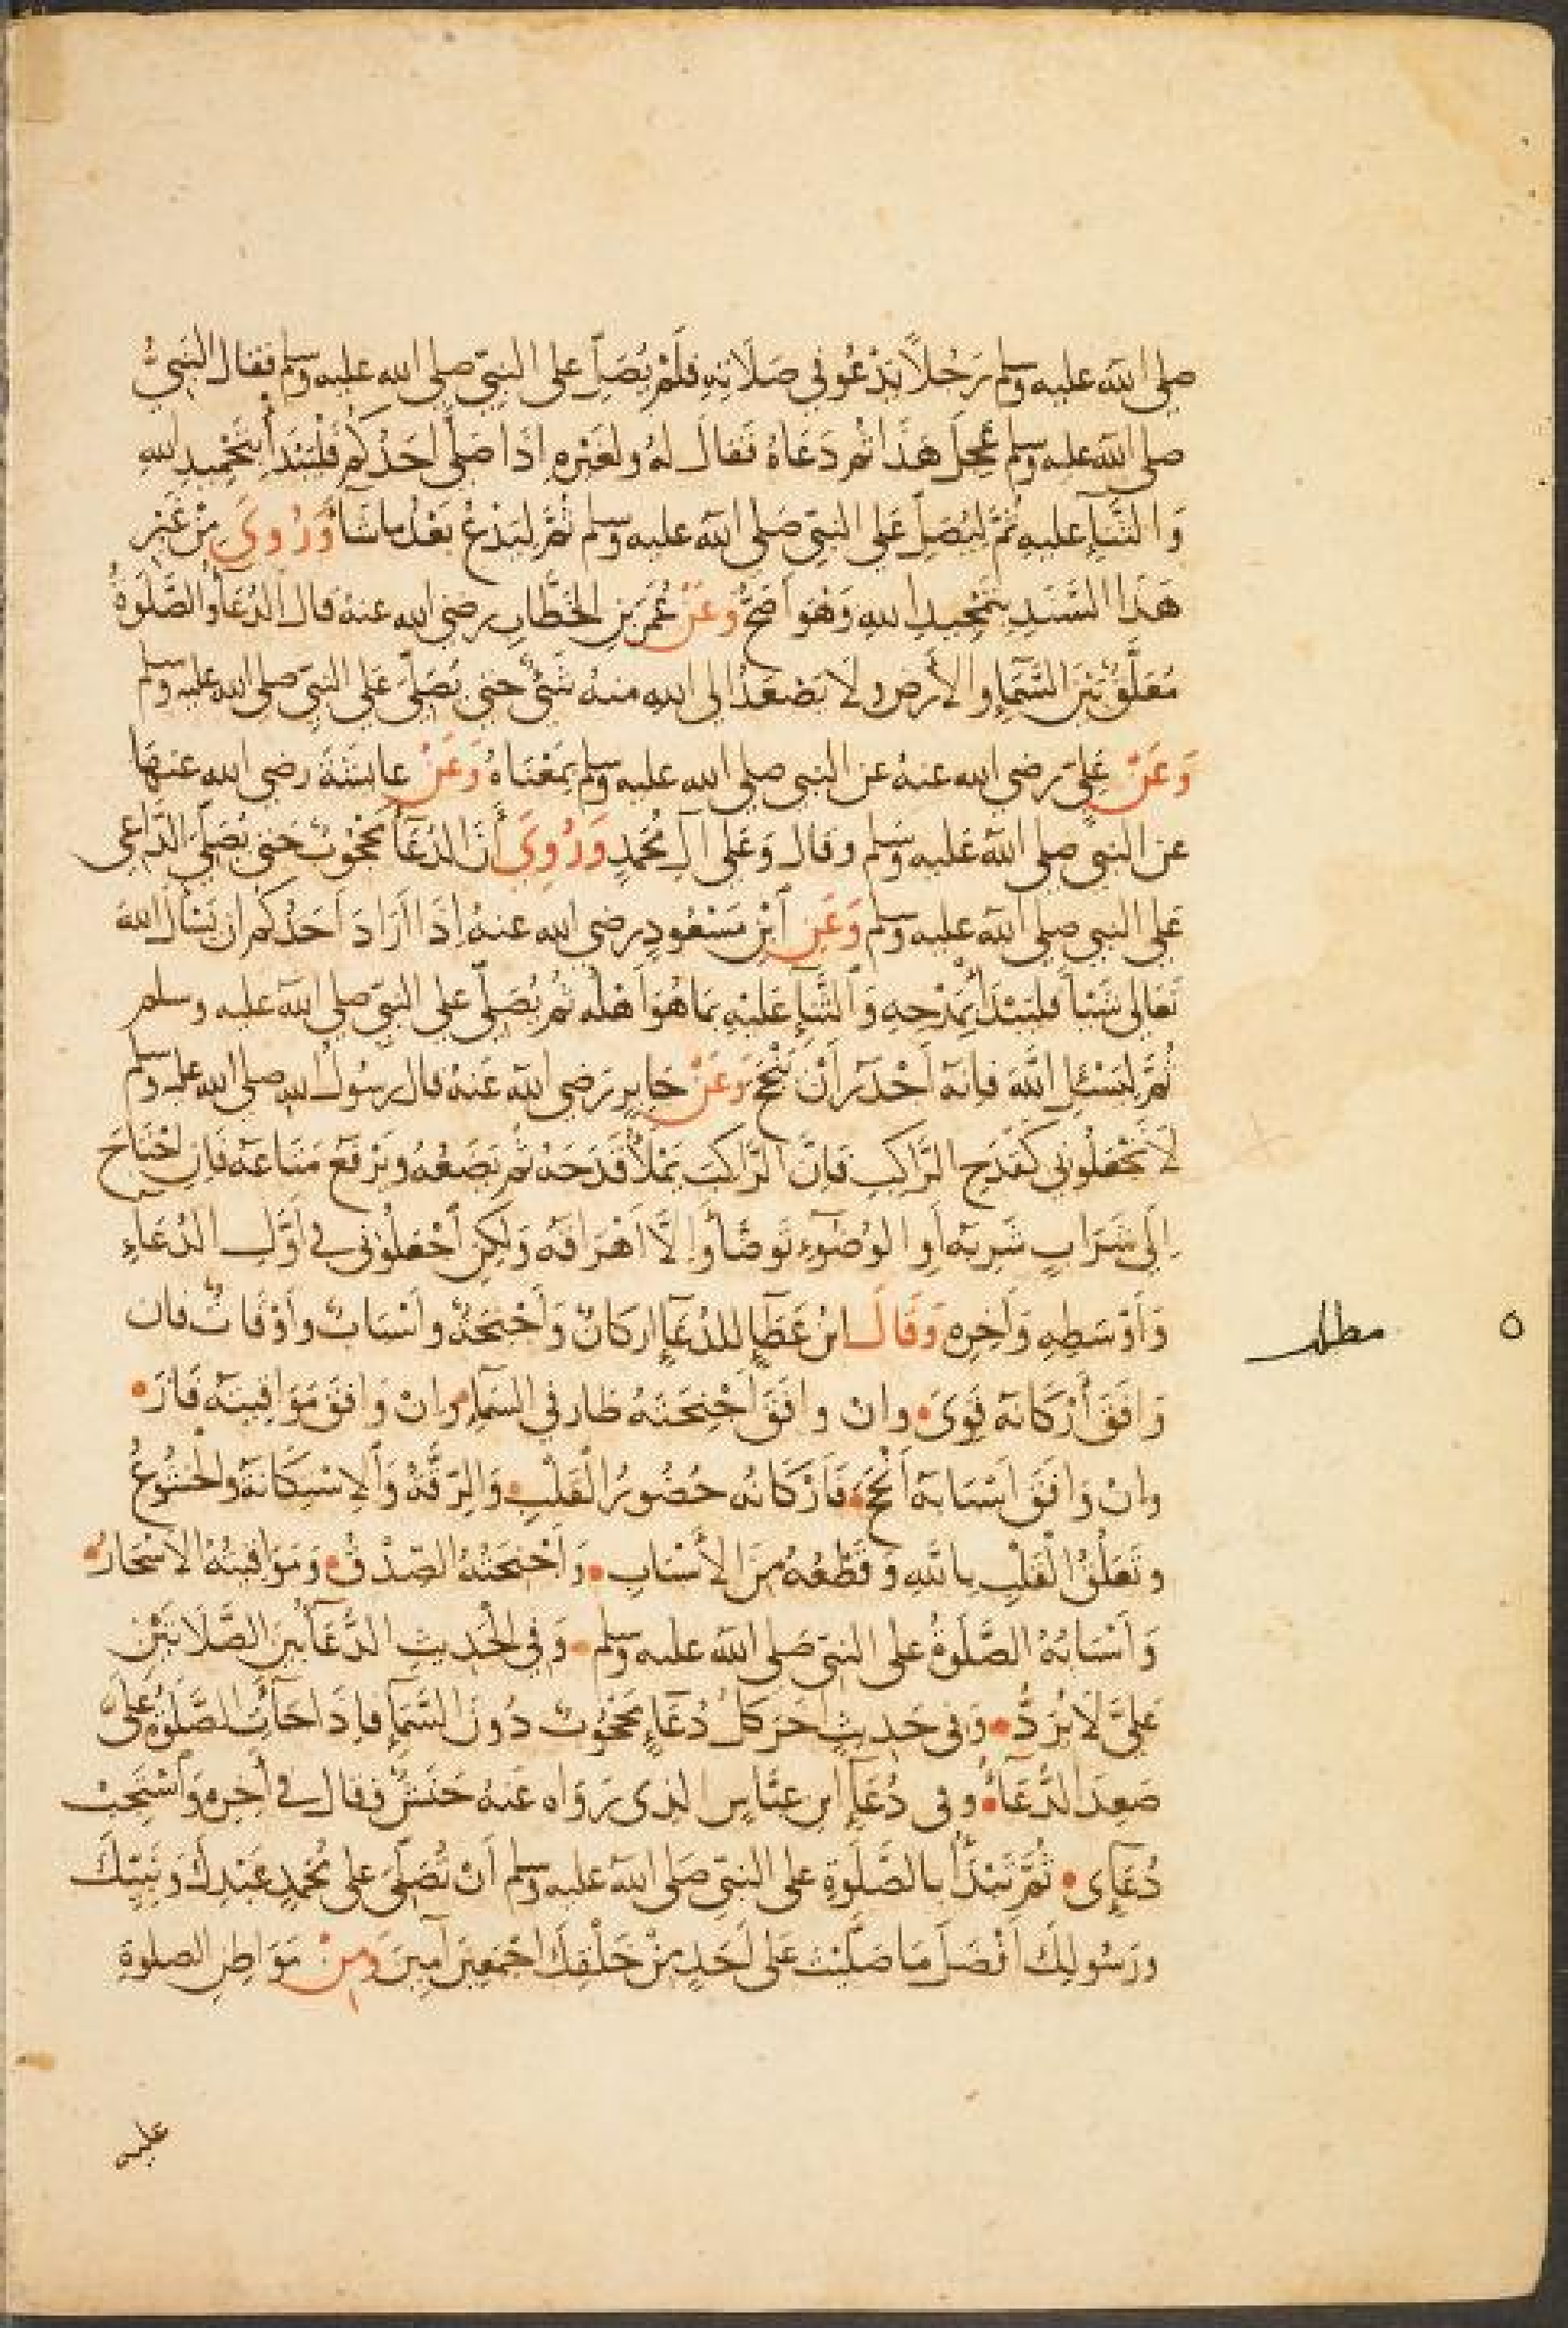 صلى الله عليه وسلم رَجُلاً يَدْعُو فِي صَلَاتِهِ فلَمْ يُصَلِّ على النبيّ صلى الله عليه وسلم فقال النبيُّ
صلى الله عليه وسلم عَجِلَ هَذَا ثُمّ دَعَاهُ فَقالَ لهُ ولغَيْرِهِ اذَا صَلَّى احَدُكُم فَلْيَبْدَأْ بتَحْمِيدِ اللهِ
وَالثَّنَآءِ عليهِ ثُمَّ ليُصَلِّ عَلى النبيّ صَلى الله عليه وسلم ثُمَّ ليَدْعُ بَعْدُ ماشَآءَ وَرُوِيَ مِنْ غَيْرِ
هَذَا السَّنَدِ بتَمْجِيدِ اللهِ وَهْوَ أصَحُّ وَعَنْ عُمَرَ بنِ الخطَّابِ رضى الله عنهُ قال الدُعَآءُ والصَّلوةُ
مُعَلَّقٌ بَيْنَ السَّمَآءِ والأرضِ ولَا يَصْعَدُ الى اللهِ منهُ شَىْءٌ حتى يُصَلّىَ عَلى النبيّ صلى الله عليه وسلم
وَعَنْ عَلِيّ رضى الله عنهُ عن النبى صلى الله عليه وسلم بمَعْنَاهُ وَعَنْ عايشَةَ رضى الله عنهَا
عن النبى صلى الله عَليه وَسَلم وقال وَعَلى آلِ مُحَمّدٍ وَرُوِيَ أنَّ الدُعَآءَ مَحْجُوبٌ حَتى يُصَلّىَ الدَّاعِى
عَلى النبى صلى الله عليه وسلم وَعَنِ ابْنِ مَسْعُودٍ رضى الله عنهُ إذَا ارَادَ أحَدُكُم ان يَسْأل اللهَ
تَعَالى شَيْأً فليَبْدَأْ بمَدْحِهِ وَالثَّنَآءِ عَلَيْهِ بمَا هُوَ أهْلهُ ثُمّ يُصَلّى على النبيّ صلى الله عليه وسلم
ثُمَّ ليَسْئَلِ اللهَ فَاِنّهُ أجْدَرُ أنْ يَنْجَحَ وَعَنْ جَابِرٍ رَضى الله عَنهُ قال رسُولُ الله صلى الله عليه وسلم
لَا تَجْعَلُونِى كَقَدَحِ الرَّاكِبِ فَاِنَّ الرَّاكبَ يَمْلأُ قَدَحَهُ ثُمّ يَضَعُهُ ويَرْفَعُ مَتَاعَهُ فَاِنِ احْتَاجَ
اِلَى شَرَابٍ شَرِبَهُ أوِ الوُضُوءِ تَوضّأَ وَاِلَّا اَهْرَاقَهُ وَلَكِنِ اجْعَلُونِى فى أوَّلِ الدُعَاءِ
وَأوْسَطِهِ وَآخِرِهِ وَقَالَ ابنُ عَطَآءٍ للدُعَآءِ اركَانٌ وَأجْنِحَةٌ وأسْبَابٌ وأَوْقَاتٌ فان
وَافَقَ أرْكَانَهُ قَوِىَ وان وافَقَ أجْنِحَتَهُ طَار فى السَمَآءِ وانْ وَافَقَ مَوَاقِيتَهُ فَازَ
وانْ وَافَقَ أسْبَابَهُ أنْجَحَ فَأَرْكَانُه حُضُورُ القَلْبِ وَالرِّقَّةُ وَالاِسْتِكَانَةُ والخُشُوعُ
وتَعَلُّقُ القَلْبِ باللهِ وقَطْعُهُ مِنَ الأسْبَابِ وَأجْنِحَتُهُ الصّدْقُ وَمَوَاقِيتُهُ الأسْحَارُ
وَأسْبَابُهُ الصَّلوةُ على النبيّ صَلى الله عليه وسلم وَفِى الحَدِيثِ الدُّعَآءُ بَيْنَ الصَّلَاتَيْنِ
عَلَىَّ لَا يُرَدُّ وَفى حَدِيثٍ آخَرَ كلُّ دُعَآءٍ مَحْجُوبٌ دُونَ السَّمَآءِ فاِذَا جَآءَتِ الصَّلوةُ عَلَىَّ
صَعِدَ الدُّعَآءُ وفى دُعَآءِ ابنِ عَبَّاسٍ الذى رَوَاه عَنهُ حَنَشٌ فقال فى آخِرِهِ وَاسْتَجِبْ
دُعَآءِى ثُمَّ تَبْدَأُ بالصَّلَوةِ على النبيّ صَلى الله عليه وسلم أنْ تُصَلّىَ على مُحَمدٍ عَبْدِكَ وَنَبِيّكَ
ورَسُولِكَ أفْضَلَ مَا صَلّيْتَ عَلى أحَدٍ مِنْ خَلْقِكَ اجْمَعِينَ آمِينَ وَمِنْ مَوَاطِنِ الصلوةِ
مطلب
عليه